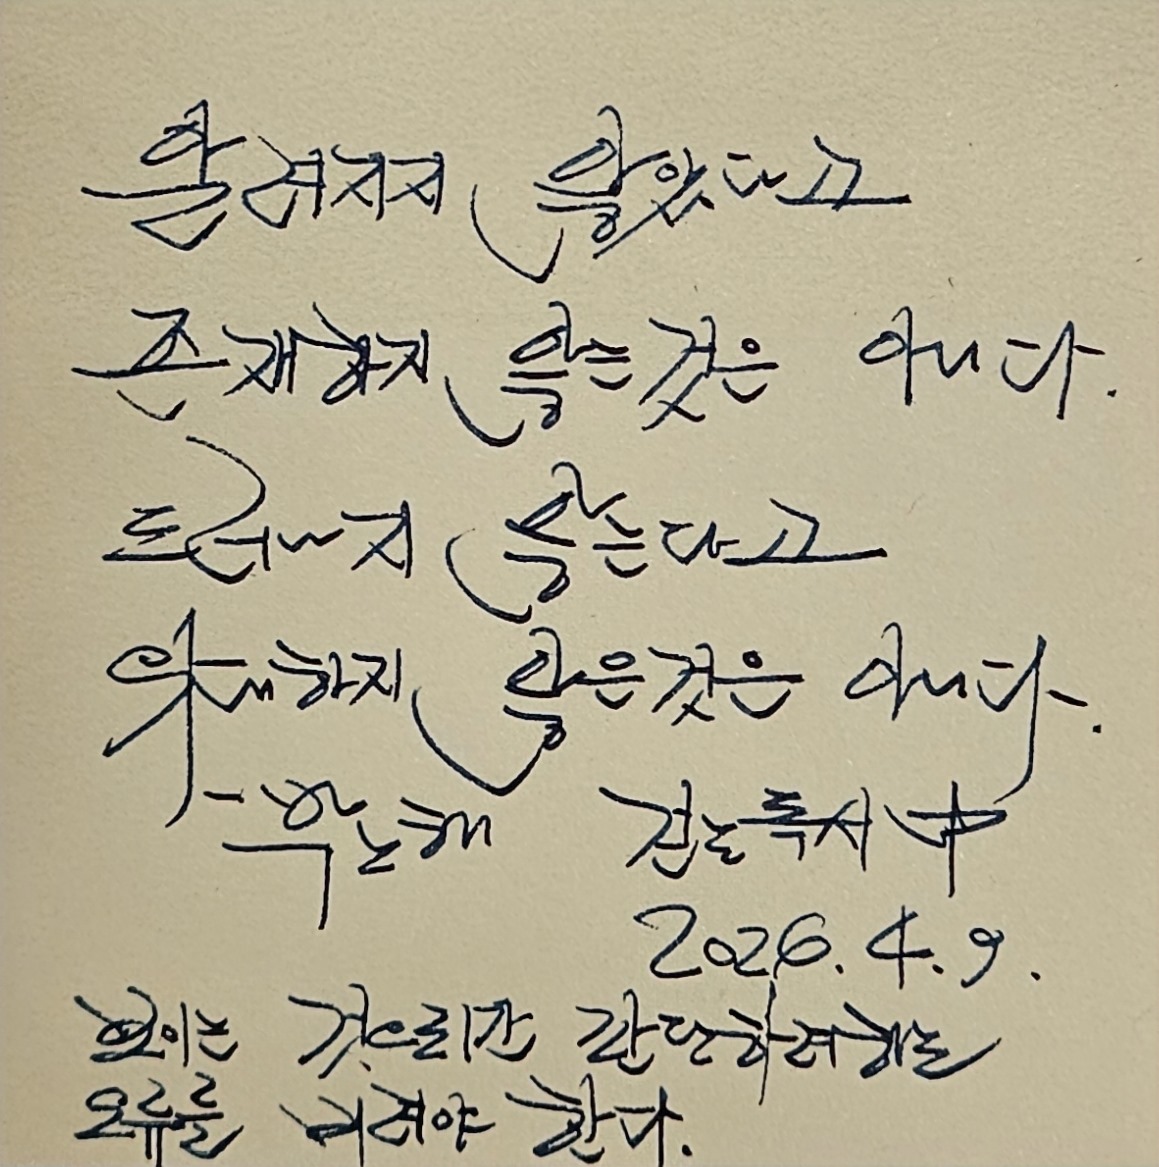 알려지지 않았다고
존재하지 않는것은 아니다.
드러내지 않는다고
위대하지 않은것은 아니다.
- 박노해 걷는독서 中
2026. 4. 9.
보이는 것으로만 판단하려하는
오류를 버려야 한다.